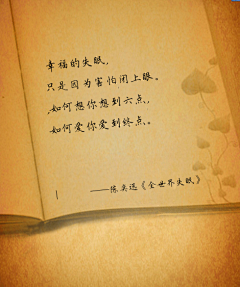 幸福的失眠，
只是因为害怕闭上眼。
，如何想你想到六点，
如何爱你爱到终点。
——陈奕迅《全世界失眠》